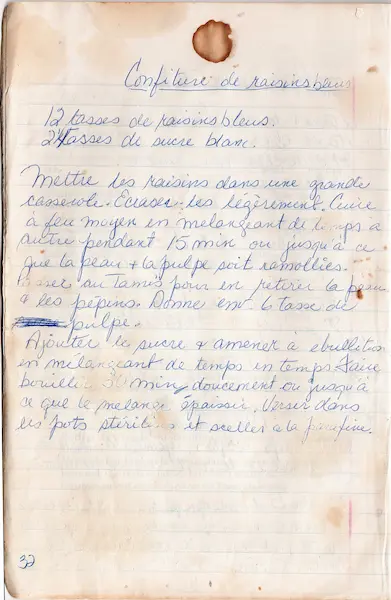 Confiture de raisins bleus
12 tasses de raisins bleus.
2 tasses de sucre blanc.
Mettre les raisins dans une grande
casserole. Écraser les légèrement. Cuire
à feu moyen en mélangeant de temps à
autre pendant 15 min ou jusqu'à ce
que la peau + la pulpe soit ramollies.
Passer au Tamis pour en retirer la peau
+ les pépins. Donne env. 6 tasse de
pulpe.
Ajouter le sucre + amener à ebullition
en mélangeant de temps en temps. Faire
bouillir min, doucement ou jusqu'à
ce que le melange épaissir. Verser dans
les pots stérilisés et sceller a la parafine.
32